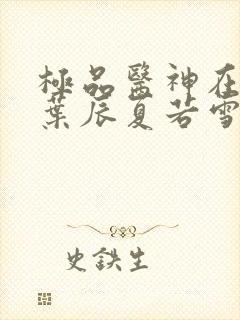 極品醫神在
葉辰夏若雪
史鉄生